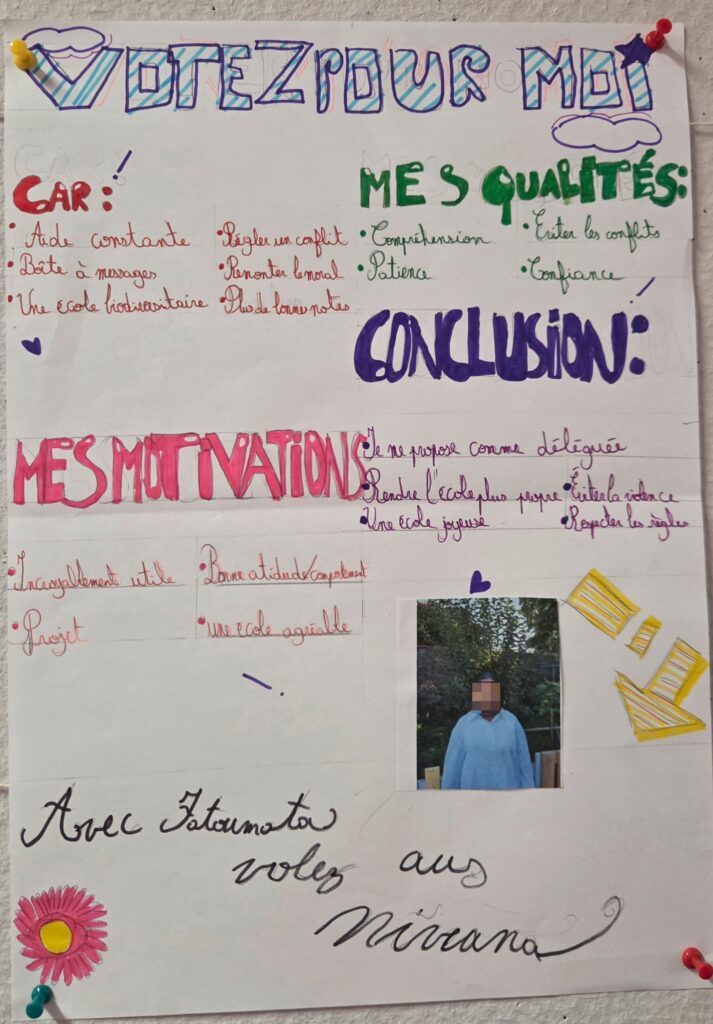 VOTEZ POUR MOI
CAR : !
• Aide constante
• Boîte à messages
• Une école biodiversitaire
• Régler un conflit
• Remonter le moral
• Plus de bonnes notes
MES QUALITÉS :
• Compréhension
• Patience
• Eviter les conflits
• Confiance
CONCLUSION : !
• Je me propose comme déléguée
• Rendre l'école plus propre
• Une école joyeuse
• Eviter la violence
• Respecter les règles
MES MOTIVATIONS
• Incroyablement utile
• Projet
• Bonne atidude/comportement
• une école agréable
Avec Fatoumata
volez aus
nirvana